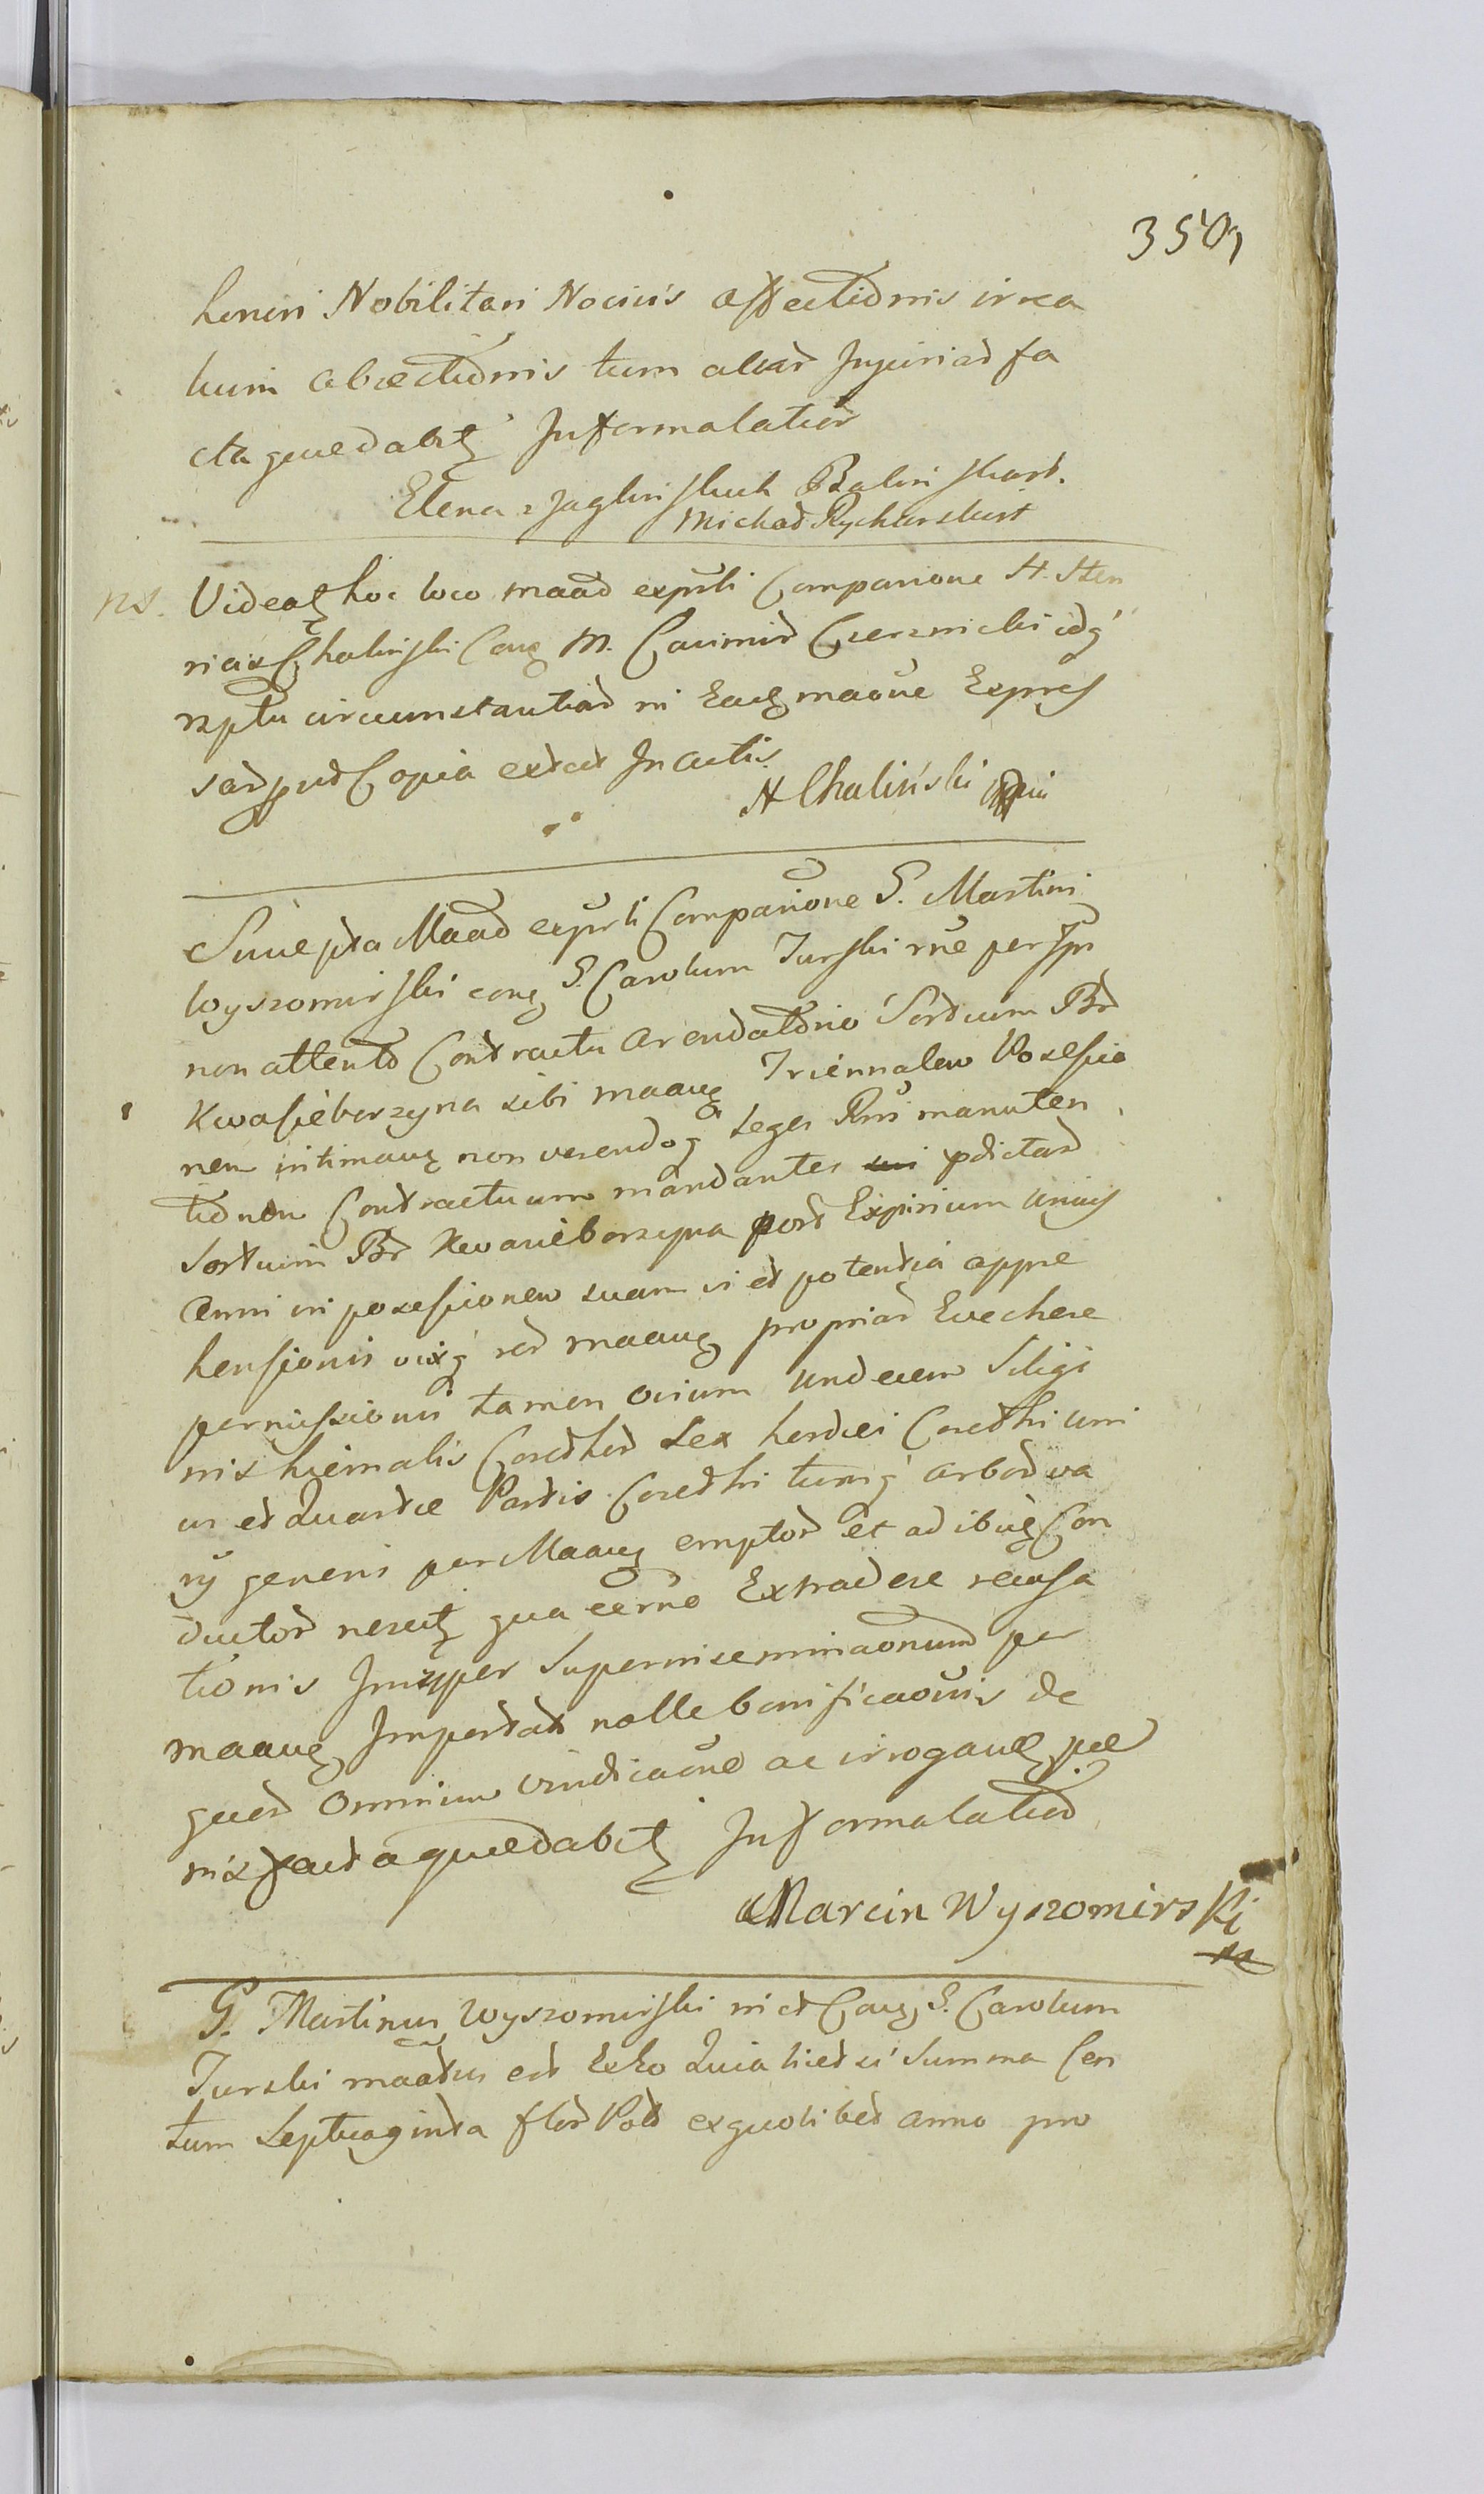 350
honori Nobilitari Nociuis affectionis irrea
tum abiectionis tum aliar Injuriar fa
cta quaedabit Informalatior
Elena z Jaglinskich Balinskart.
Michał Rycharskirt
ns. Videat hoc loco maad exprsti Comparione H. Hen
ricus Chalinski Cong M. Casimir Czersnicki idq
rsptu circumstantiar ni Eadg maoue Expres
sar put Copia extat In actis
H Chaliński mpia
Suscepta Maad exprsti Comparione G. Martini
Wyszomirski cong G. Carolum Turski rne per Ipn
non attento Contractu arendatorio Sortium Br
Kwasieborzyna sibi maang Triennalem Posessio
nem intimang non verendoq Leges Rni manuten
tionem Contractuum mandantes pdictar
Sortium Br Kwasieborzyna post Expirium unius
Anni in posessionem suam vi et potentia appre
hensionis vixq red maang propriar Evechere
permissionis tamen ovium undecem Siligi
nis hiemalis Corethor Sex hordei Corethi uni
us et Quartae Partis Corethi tumq arbor va
rij generis per Maang emptor et ad ibus Con
ductor nescit qua cerne Extradere recusa
tionis Insuper Superinseminaonum per
maang Importat nolle bonificaonis de
quor Omnium vindicaone ac irrogang pae
nis facta quaedabit Informalatior
Marcin Wyszomirski
G. Martinus Wyszomirski nict Cong G. Carolum
Turski maatus est Exko Quia licet ei Summa Cen
tum Septuaginta flor Pol ex quolibet anno pro